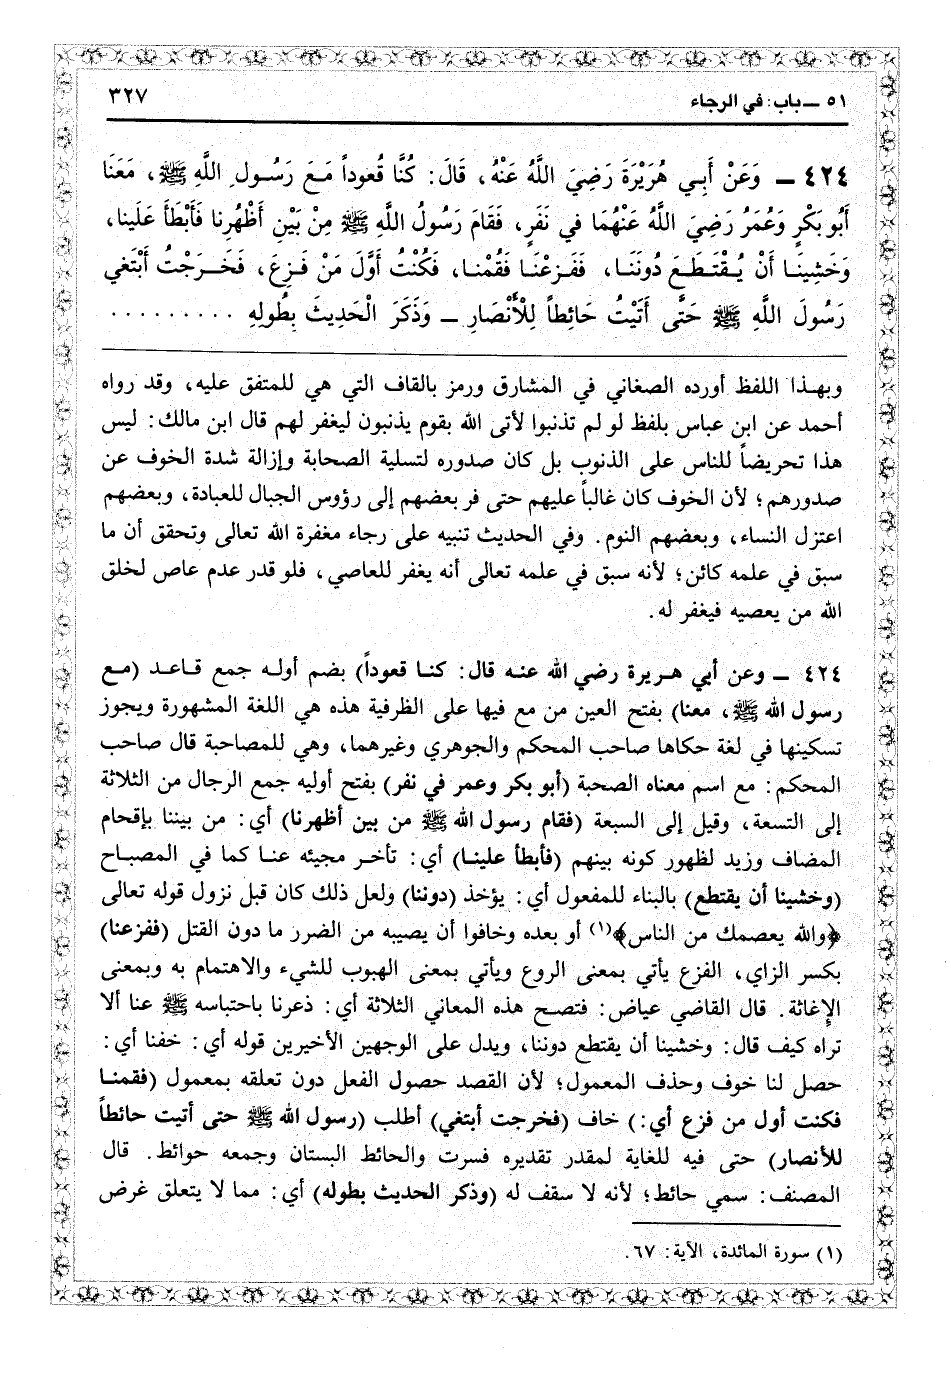 ٥١ ــ باب: في الرجاء
٣٢٧
٤٢٤ ــ وَعَنْ أَبِي هُرَيْرَةَ رَضِيَ اللَّهُ عَنْهُ، قَالَ: كُنَّا قُعوداً مَعَ رَسُولِ اللَّهِ ﷺ، مَعَنَا
أَبُو بَكْرٍ وَعُمَرُ رَضِيَ اللَّهُ عَنْهُمَا في نَفَرٍ، فَقَامَ رَسُولُ اللَّهِ ﷺ مِنْ بَيْنِ أَظْهُرِنا فَأَبْطَأَ عَلَينا،
وَخَشِينَا أَنْ يُقْتَطَعَ دُونَنَا، فَفَزِعْنَا فَقُمْنا، فَكُنْتُ أَوَّلَ مَنْ فَزِعَ، فَخَرَجْتُ أَبْتَغي
رَسُولَ اللَّهِ ﷺ حَتَّى أَتَيْتُ حَائِطاً لِلْأَنْصَارِ ــ وَذَكَرَ الْحَدِيثَ بِطُولِهِ . . . . . . . . .
وبهذا اللفظ أورده الصغاني في المشارق ورمز بالقاف التي هي للمتفق عليه، وقد رواه
أحمد عن ابن عباس بلفظ لو لم تذنبوا لأتى الله بقوم يذنبون ليغفر لهم قال ابن مالك: ليس
هذا تحريضاً للناس على الذنوب بل كان صدوره لتسلية الصحابة وإزالة شدة الخوف عن
صدورهم؛ لأن الخوف كان غالباً عليهم حتى فر بعضهم إلى رؤوس الجبال للعبادة، وبعضهم
اعتزل النساء، وبعضهم النوم. وفي الحديث تنبيه على رجاء مغفرة الله تعالى وتحقق أن ما
سبق في علمه كائن؛ لأنه سبق في علمه تعالى أنه يغفر للعاصي، فلو قدر عدم عاص لخلق
الله من يعصيه فيغفر له.
٤٢٤ ــ وعن أبي هريرة رضي الله عنه قال: كنا قعوداً) بضم أوله جمع قاعد (مع
رسول الله ﷺ، معنا) بفتح العين من مع فيها على الظرفية هذه هي اللغة المشهورة ويجوز
تسكينها في لغة حكاها صاحب المحكم والجوهري وغيرهما، وهي للمصاحبة قال صاحب
المحكم: مع اسم معناه الصحبة (أبو بكر وعمر في نفر) بفتح أوليه جمع الرجال من الثلاثة
إلى التسعة، وقيل إلى السبعة (فقام رسول الله ﷺ من بين أظهرنا) أي: من بيننا بإقحام
المضاف وزيد لظهور كونه بينهم (فأبطأ علينا) أي: تأخر مجيئه عنا كما في المصباح
(وخشينا أن يقتطع) بالبناء للمفعول أي: يؤخذ (دوننا) ولعل ذلك كان قبل نزول قوله تعالى
﴿والله يعصمك من الناس﴾(١) أو بعده وخافوا أن يصيبه من الضرر ما دون القتل (ففزعنا)
بكسر الزاي، الفزع يأتي بمعنى الروع ويأتي بمعنى الهبوب للشيء والاهتمام به وبمعنى
الإغاثة. قال القاضي عياض: فتصح هذه المعاني الثلاثة أي: ذعرنا باحتباسه ﷺ عنا ألا
تراه كيف قال: وخشينا أن يقتطع دوننا، ويدل على الوجهين الأخيرين قوله أي: خفنا أي:
حصل لنا خوف وحذف المعمول؛ لأن القصد حصول الفعل دون تعلقه بمعمول (فقمنا
فكنت أول من فزع أي:) خاف (فخرجت أبتغي) أطلب (رسول الله ﷺ حتى أتيت حائطاً
للأنصار) حتى فيه للغاية لمقدر تقديره فسرت والحائط البستان وجمعه حوائط. قال
المصنف: سمي حائط؛ لأنه لا سقف له (وذكر الحديث بطوله) أي: مما لا يتعلق غرض
(١) سورة المائدة، الآية: ٦٧.